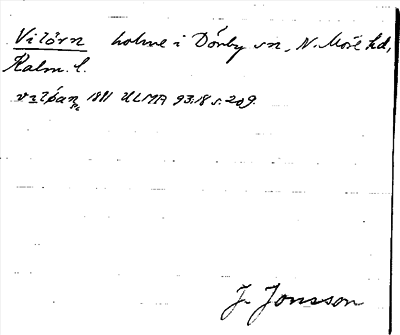 Vitörn holme i Dörby sn, N. Möre hd,
Kalm. l.
1881 ULMA 93:18 s. 209.
J. Jonsson